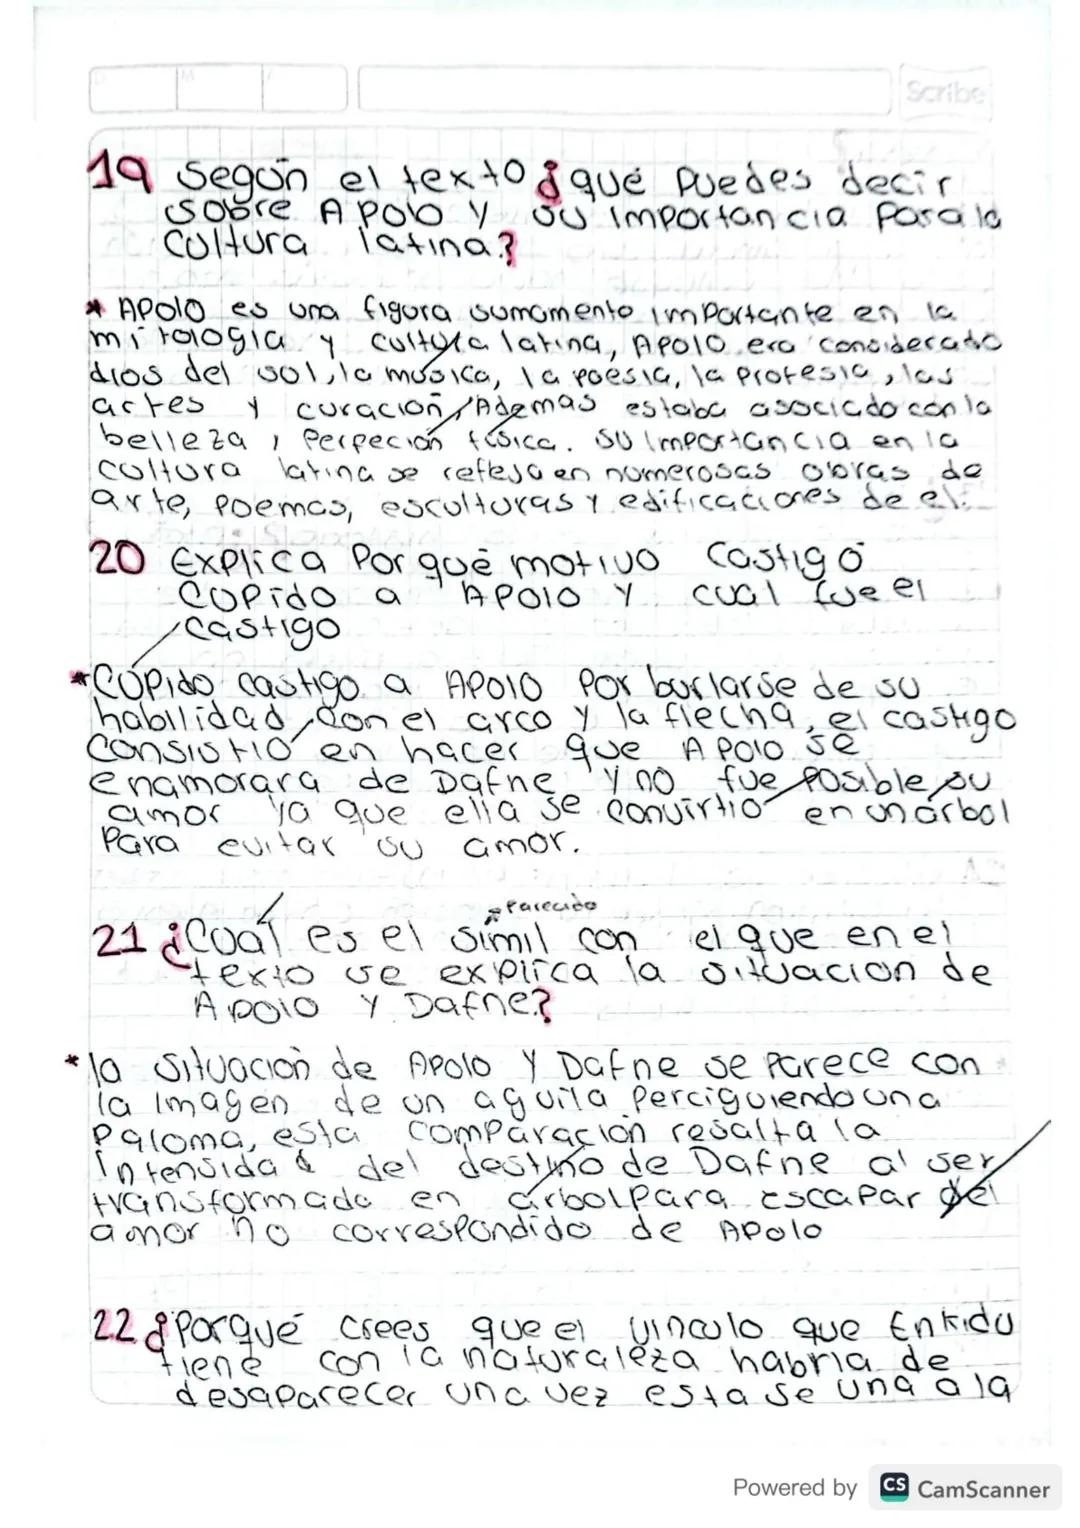 D M A
Scribe
19 Según el texto ¿qué puedes decir
sobre Apolo y su importancia para la
cultura latina?
* Apolo es una figura sumamente importante en la
mitología y cultura latina, Apolo era considerado
dios del sol, la música, la poesía, la profesia, las
artes y curación, Además estaba asociado con la
belleza, perpeción física. Su importancia en la
cultura latina se refleja en numerosas obras de
arte, poemas, esculturas y edificaciones de el.
20 Explica Por qué motivo castigó
Cupido a Apolo y cual fue el
castigo
*Cúpido castigo a Apolo por burlarse de su
habilidad con el arco y la flecha, el castigo
consistio en hacer que Apolo se
enamorara de Dafne y no fue posible su
amor ya que ella se convirtio en un árbol
Para evitar su amor.
* Parecido
21 ¿Cual es el simil con el que en el
texto se explica la situacion de
Apolo y Dafne?
* la situación de Apolo y Dafne se parece con
la imagen de un aguila perciguiendo una
Paloma, esta comparación resalta la
intensidad del destino de Dafne al ser
transformada en árbol para escapar del
amor no correspondido de Apolo
22 ¿Porqué crees que el vinculo que Enkidu
tiene con la naturaleza habria de
desaparecer una vez esta se una a la
Powered by CS CamScanner